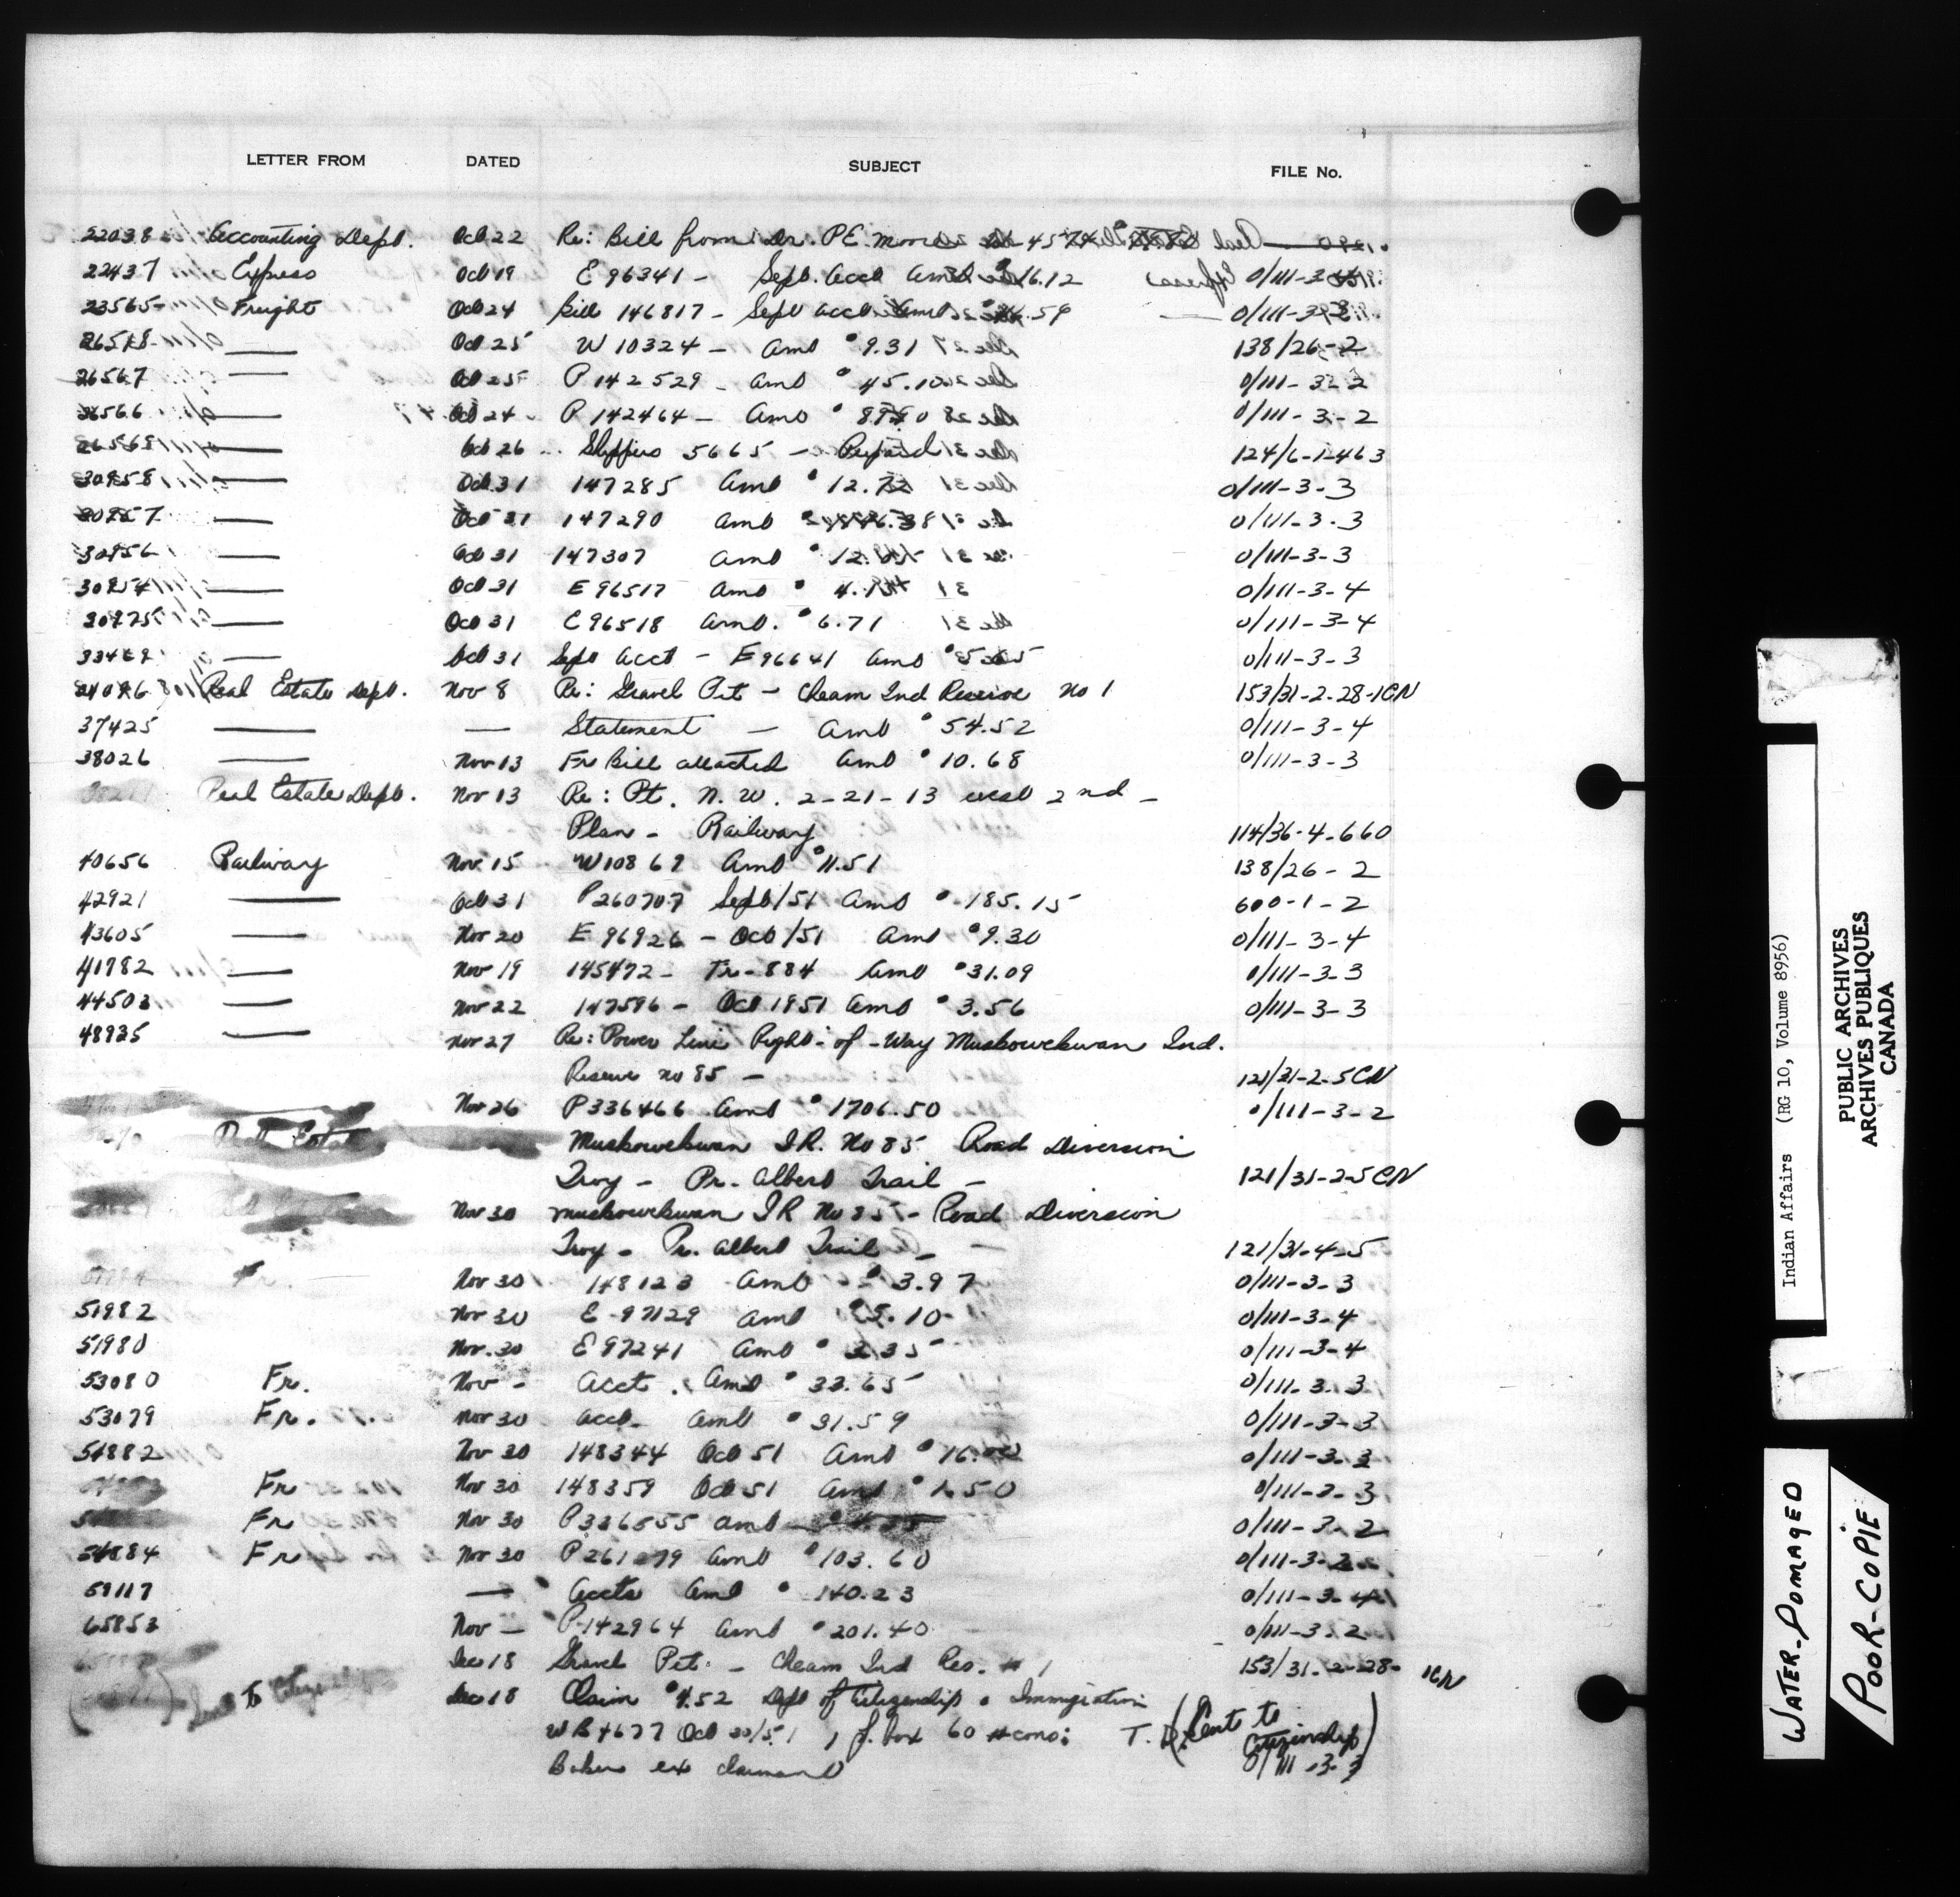 LETTER FROM DATED SUBJECT FILE No.
22038 Accounting Dept. Oct 22 Re: Bill from Dr. P.E. Moore
22437 Express Oct 19 E 96341 - Sept. Acct Amt $16.12 0/111-3
23565 Freight Oct 24 Bill 146817 - Sept Acct Amt .59 0/111-3
26518 — Oct 25 W 10324 - Amt $9.31 138/26-2
26567 — Oct 25 P 142529 - Amt $45.10 0/111-3-2
26566 — Oct 24 P 142464 - Amt 0/111-3-2
26565 — Oct 26 Shippers 5665 - Prepaid 124/6-1-463
30958 — Oct 31 147285 Amt $12.72 0/111-3-3
30957 — Oct 31 147290 Amt 0/111-3-3
30956 — Oct 31 147307 Amt $12. 0/111-3-3
30954 — Oct 31 E 96517 Amt $4. 0/111-3-4
— Oct 31 E 96518 Amt. $6.71 0/111-3-4
33469 — Oct 31 Sept Acct - E 96641 Amt 0/111-3-3
Real Estate Dept. Nov 8 Re: Gravel Pit - Cheam Ind Reserve No 1 153/31-2-28-1CN
37425 — — Statement - Amt $54.52 0/111-3-4
38026 — Nov 13 Fr Bill attached Amt $10.68 0/111-3-3
Real Estate Dept. Nov 13 Re: Pt. N.W. 2-21-13 west 2nd -
Plan - Railway 114/36-4-660
40656 Railway Nov 15 W10869 Amt $11.51 138/26-2
42921 — Oct 31 P260707 Sept/51 Amt $185.15 600-1-2
43605 — Nov 20 E 96926 - Oct/51 Amt $9.30 0/111-3-4
41782 — Nov 19 145472 - Fr-884 Amt $31.09 0/111-3-3
44503 — Nov 22 147596 - Oct 1951 Amt $3.56 0/111-3-3
48935 — Nov 27 Re: Power Line Right-of-Way Muskowekwan Ind.
Reserve No 85 - 121/31-2-5CN
Nov 26 P336466 Amt $1706.50 0/111-3-2
Real Estate Muskowekwan I.R. No 85 Road Diversion
Troy - Pr. Albert Trail - 121/31-2-5CN
Nov 30 Muskowekwan I R No 85 - Road Diversion
Troy - Pr. Albert Trail - 121/31-4-5
Fr. Nov 30 148123 Amt $3.97 0/111-3-3
51982 Nov 30 E-97129 Amt $5.10 0/111-3-4
51980 Nov. 30 E 97241 Amt $3.35 0/111-3-4
53080 Fr. Nov - Acct. Amt $33.65 0/111-3-3
53079 Fr. Nov 30 Acct. Amt $31.59 0/111-3-3
54882 Nov 30 148344 Oct 51 Amt $16. 0/111-3-3
Fr Nov 30 148359 Oct 51 Amt $1.50 0/111-3-3
Fr Nov 30 P336555 Amt 0/111-3-2
54884 Fr Nov 30 P261279 Amt $103.60 0/111-3-2
59117 — Accts Amt $140.23 0/111-3-4
65853 Nov — P-142964 Amt $201.40 0/111-3-2
Dec 18 Gravel Pit - Cheam Ind Res. #1 153/31-2-28-1CN
Sent to Citizenship Dec 18 Claim $4.52 Dept of Citizenship & Immigration
WB4677 Oct 30/51 1 f. box 60 # cons: T.D. (Sent to Citizenship)
Baker ex claimant 0/111-3-3
Indian Affairs (RG 10, Volume 8956)
PUBLIC ARCHIVES
ARCHIVES PUBLIQUES
CANADA
WATER-DOMAGED
POOR-COPIE